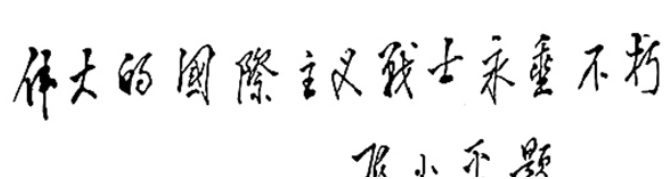 伟大的國際主义战士永垂不朽
邓小平题